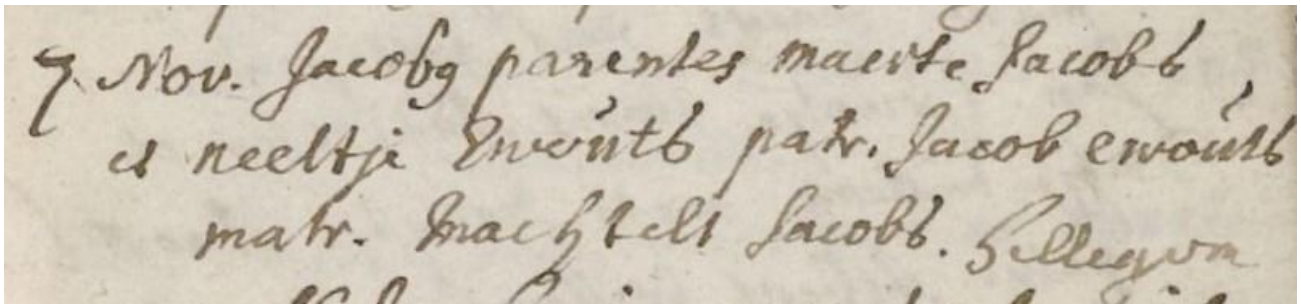 7 Nov. Jacobg parentes maerte Jacobs
et neeltje Ewoúts patr. Jacob ewoúts
matr. Machtelt Jacobs. Hillegom